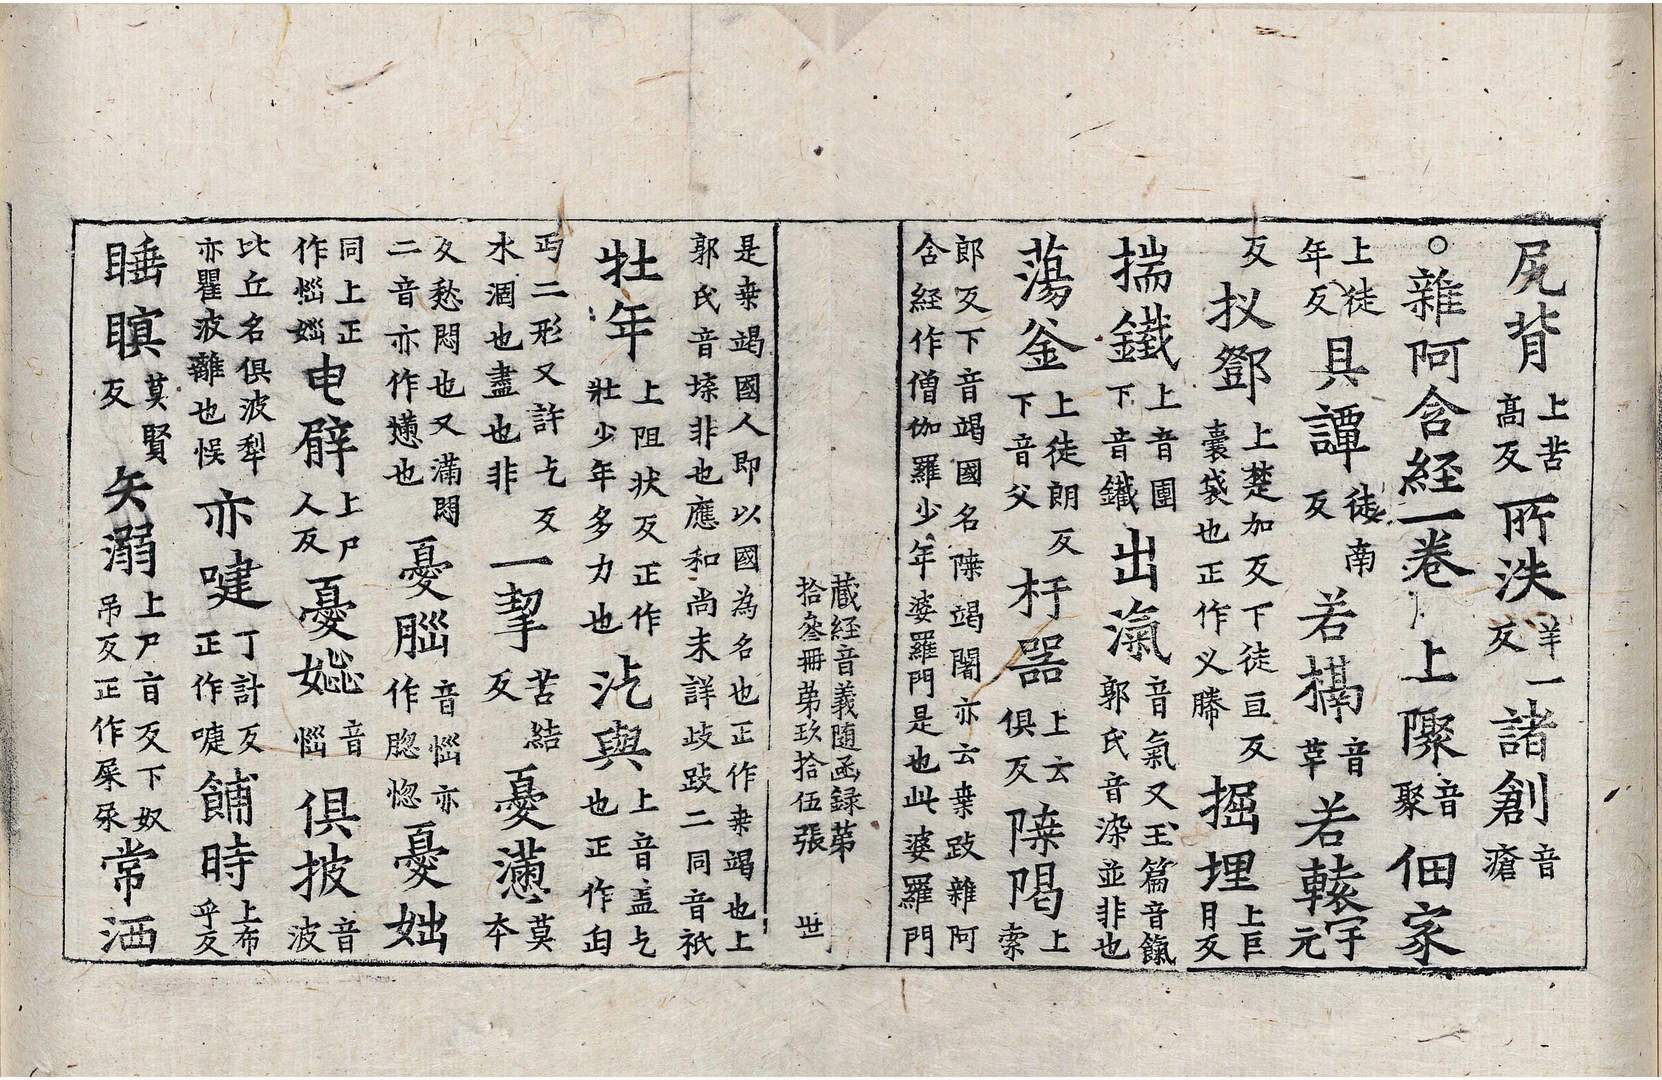 尻背上苦高反所泆羊一反諸創音瘡
○雜阿含経一卷上驟音聚佃家
上徒年反具譚徒南反若搹音革若轅宇元
反扠鄧上楚加反下徒亘反囊袋也正作㐅縢掘埋上巨月反
揣鐵上音團下音鐵出滊音氣又玉篇音餼郭氏音染並非也
蕩釜上徒朗反下音父杅器上云俱反㻎𨻶上索
郎反下音竭國名㻎竭闍亦云桒跂雜阿含経作僧伽羅少年婆羅門是也此婆羅門
蔵経音義随函録第拾叁冊苐玖拾伍張 世
是桒竭國人即以國為名也正作桒竭也上郭氏音㙡非也應和尚未詳歧跂二同音祇
牡年上阻状反正作壮少年多力也汔與上音盖乞也正作匃
丐二形又許乞反水涸也盡也非一挈苦結反憂懣莫本
反愁悶也又滿悶二音亦作懑也憂腦音惱亦作𦛁惚憂㛴
同上正作惱㛴电擘上尸人反憂㛴音惱俱披音波
比丘名俱波犁亦瞿波離也悮亦啑丁計反正作嚏餔時上布乎反
睡瞑莫賢反矢溺上尸旨反下奴吊反正作屎尿常洒